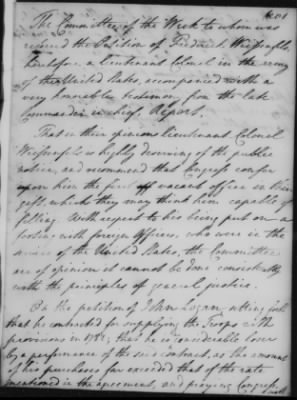 201
The Committee of the Week to whom was
referred the Petition of Frederick Weissenfels,
heretofore a lieutenant Colonel in the army
of the United States, accompanied with a
very honorable testimony from the late
Commander in chief, Report,
That in their opinion Lieutenant Colonel
Weissenfels is highly deserving of the public
notice, and recommend that Congress confer
upon him the first vacant office in their
gift, which they may think him capable of
filling. With respect to his being put on a
footing with foreign Officers, who were in the
service of the United States, the Committee
are of opinion it cannot be done consistently
with the principles of general justice.
On the petition of John Logan, setting forth
that he contracted for supplying the Troops with
provisions in 1783; that he is considerable loser
by a performance of the said contract, as the amount
of his purchases far exceeded that of the rate
mentioned in the agreement, and praying Congress